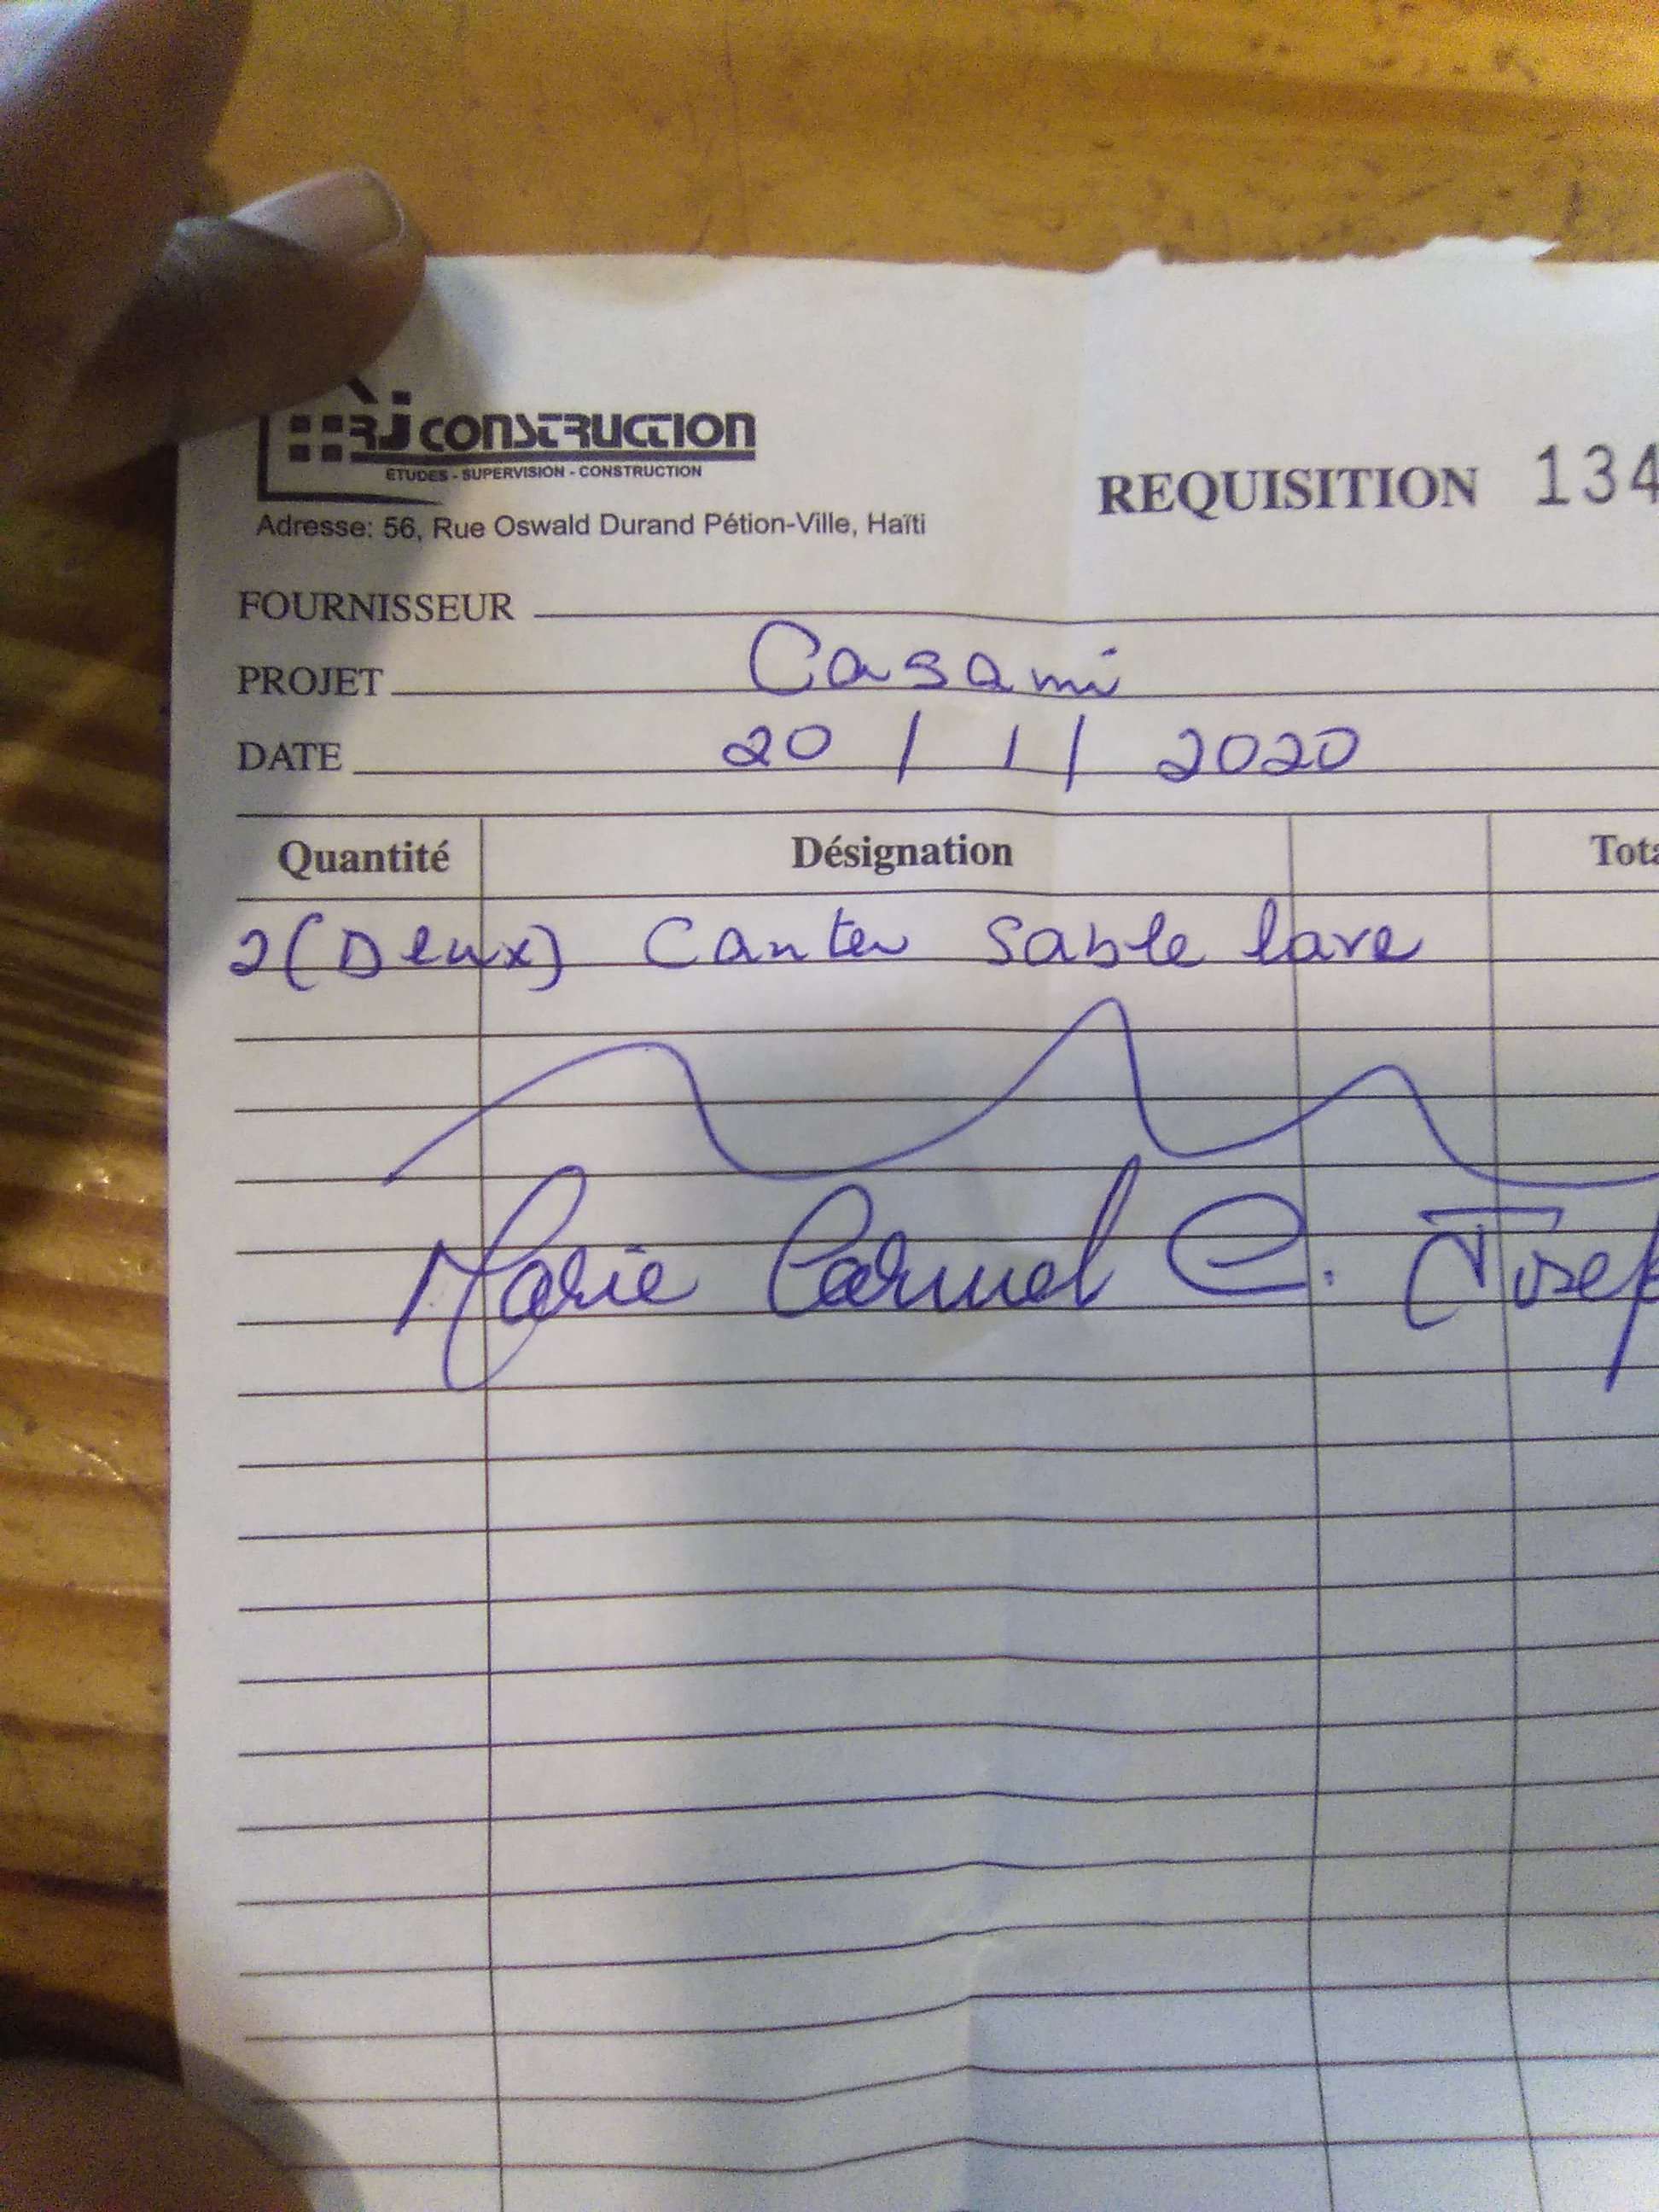 RJ CONSTRUCTION
ETUDES - SUPERVISION - CONSTRUCTION
Adresse: 56, Rue Oswald Durand Pétion-Ville, Haïti
REQUISITION 134
FOURNISSEUR
PROJET Casami
DATE 20 / 11 / 2020
Quantité Désignation Tota
2 (Deux) Canter Sable lave
Marie Carmel C. Josep